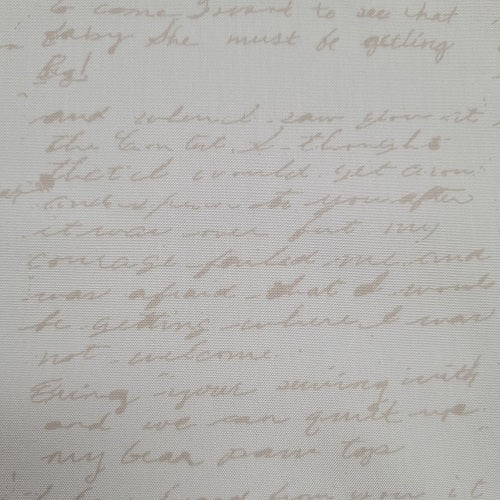 to come I want to see that
baby she must be getting
Big!
and when I saw you at
the Center I thought
that I would get around
and speak to you after
it was over but my
courage failed me and
was afraid that I would
be getting where I was
not welcome
Bring your sewing with
and we can quilt up
my bear paw top